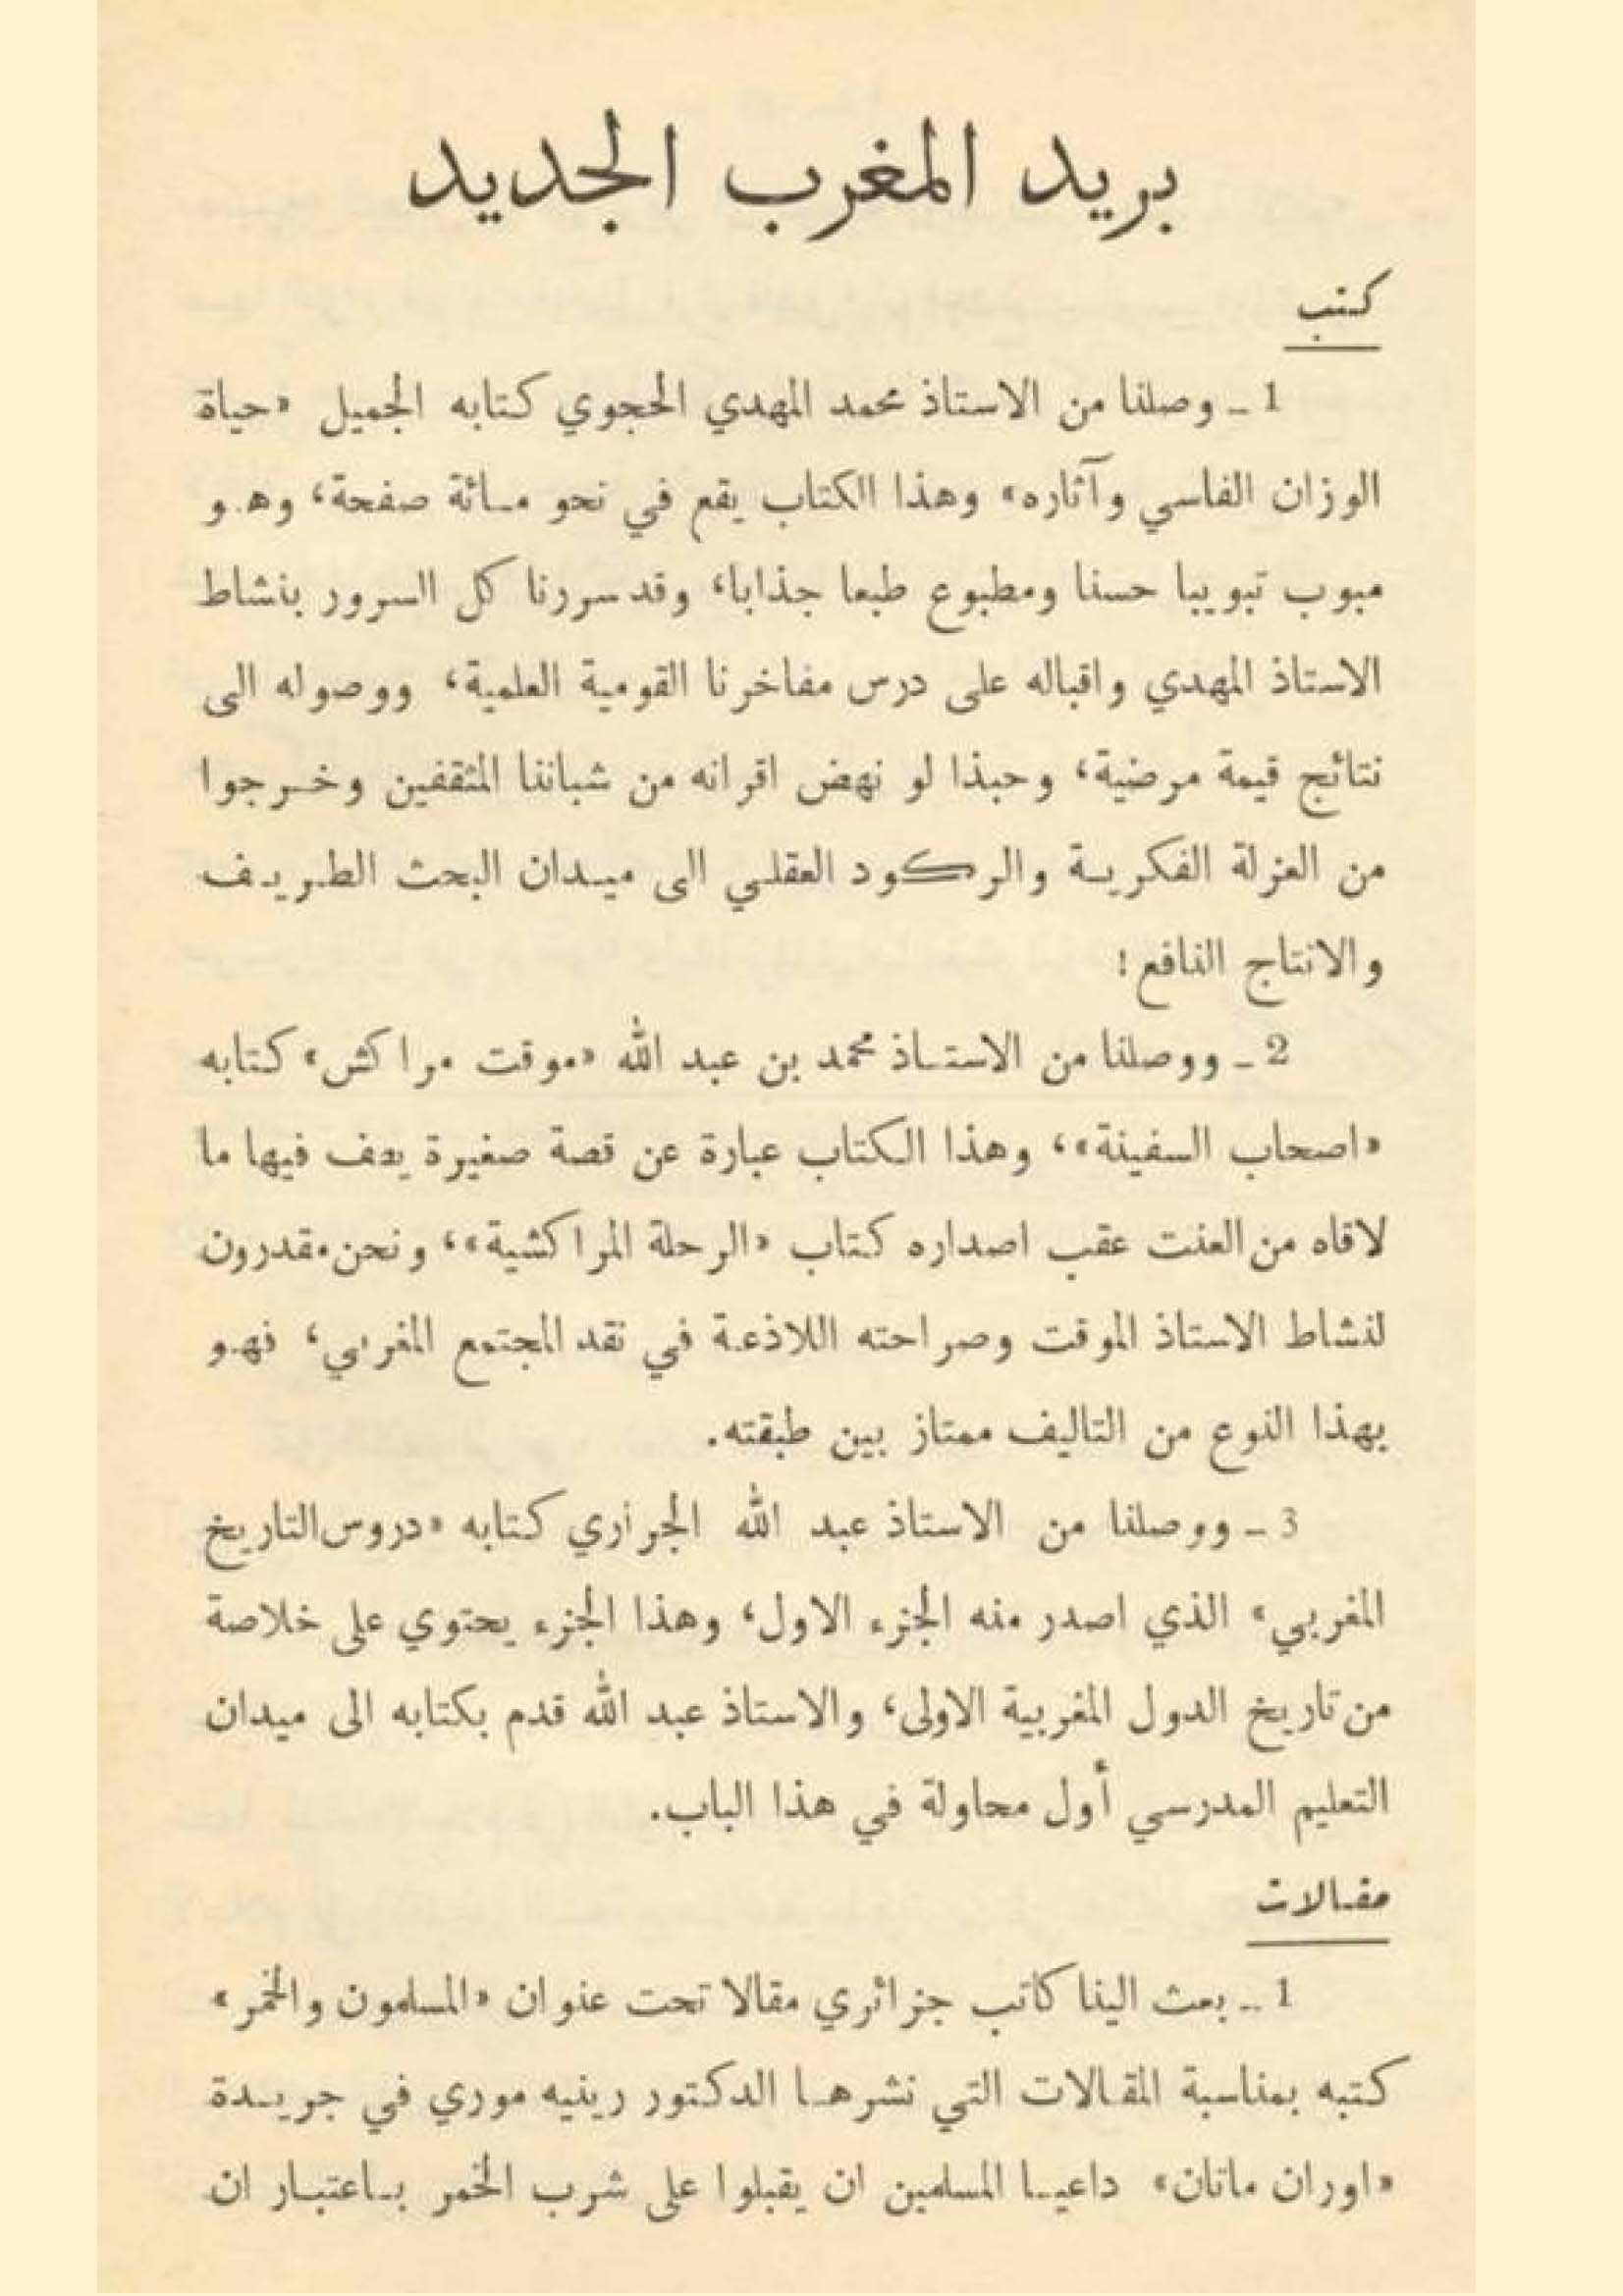 بريد المغرب الجديد
كتب
1 ـ وصلنا من الاستاذ محمد المهدي الحجوي كتابه الجميل «حياة
الوزان الفاسي وآثاره» وهذا الكتاب يقع في نحو مائة صفحة، وهو
مبوب تبويبا حسنا ومطبوع طبعا جذابا، وقد سررنا كل السرور بنشاط
الاستاذ المهدي واقباله على درس مفاخرنا القومية العلمية، ووصوله الى
نتائج قيمة مرضية، وحبذا لو نهض اقرانه من شباننا المثقفين وخرجوا
من العزلة الفكرية والركود العقلي الى ميدان البحث الطريف
والانتاج النافع!
2 ـ ووصلنا من الاستاذ محمد بن عبد الله «موقت مراكش» كتابه
«اصحاب السفينة»، وهذا الكتاب عبارة عن قصة صغيرة يصف فيها ما
لاقاه من العنت عقب اصداره كتاب «الرحلة المراكشية»، ونحن مقدرون
لنشاط الاستاذ الموقت وصراحته اللاذعة في نقد المجتمع المغربي، فهو
بهذا النوع من التاليف ممتاز بين طبقته.
3 ـ ووصلنا من الاستاذ عبد الله الجراري كتابه «دروس التاريخ
المغربي» الذي اصدر منه الجزء الاول، وهذا الجزء يحتوي على خلاصة
من تاريخ الدول المغربية الاولى، والاستاذ عبد الله قدم بكتابه الى ميدان
التعليم المدرسي أول محاولة في هذا الباب.
مقالات
1 ـ بعث الينا كاتب جزائري مقالا تحت عنوان «المسلمون والخمر»
كتبه بمناسبة المقالات التي نشرها الدكتور رينيه موري في جريدة
«اوران ماتان» داعيا المسلمين ان يقبلوا على شرب الخمر باعتبار ان